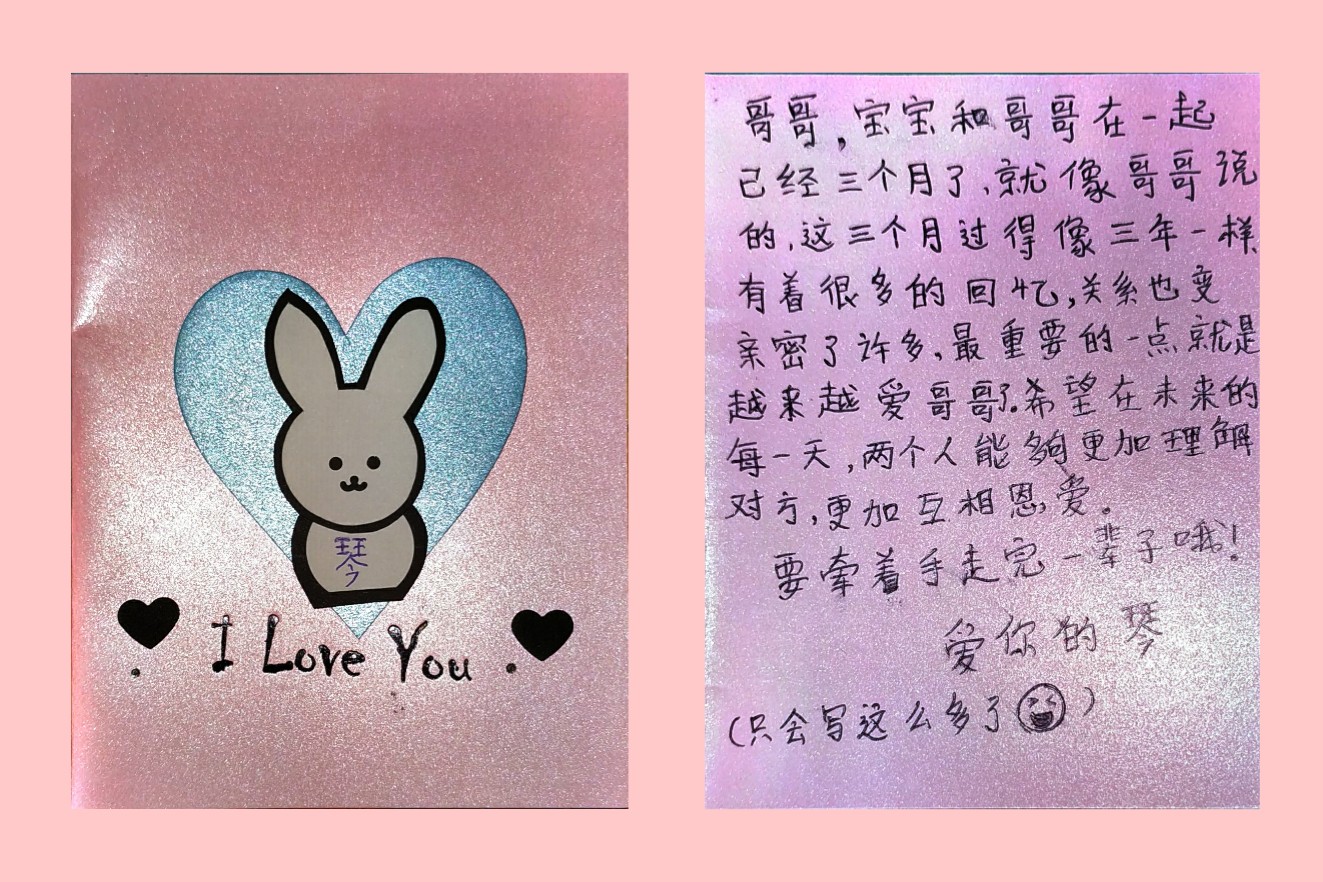 琴
I Love You
哥哥,宝宝和哥哥在一起
已经三个月了,就像哥哥说
的,这三个月过得像三年一样
有着很多的回忆,关系也变
亲密了许多,最重要的一点就是
越来越爱哥哥了。希望在未来的
每一天,两个人能够更加理解
对方,更加互相恩爱。
要牵着手走完一辈子哦!
爱你的琴
(只会写这么多了)